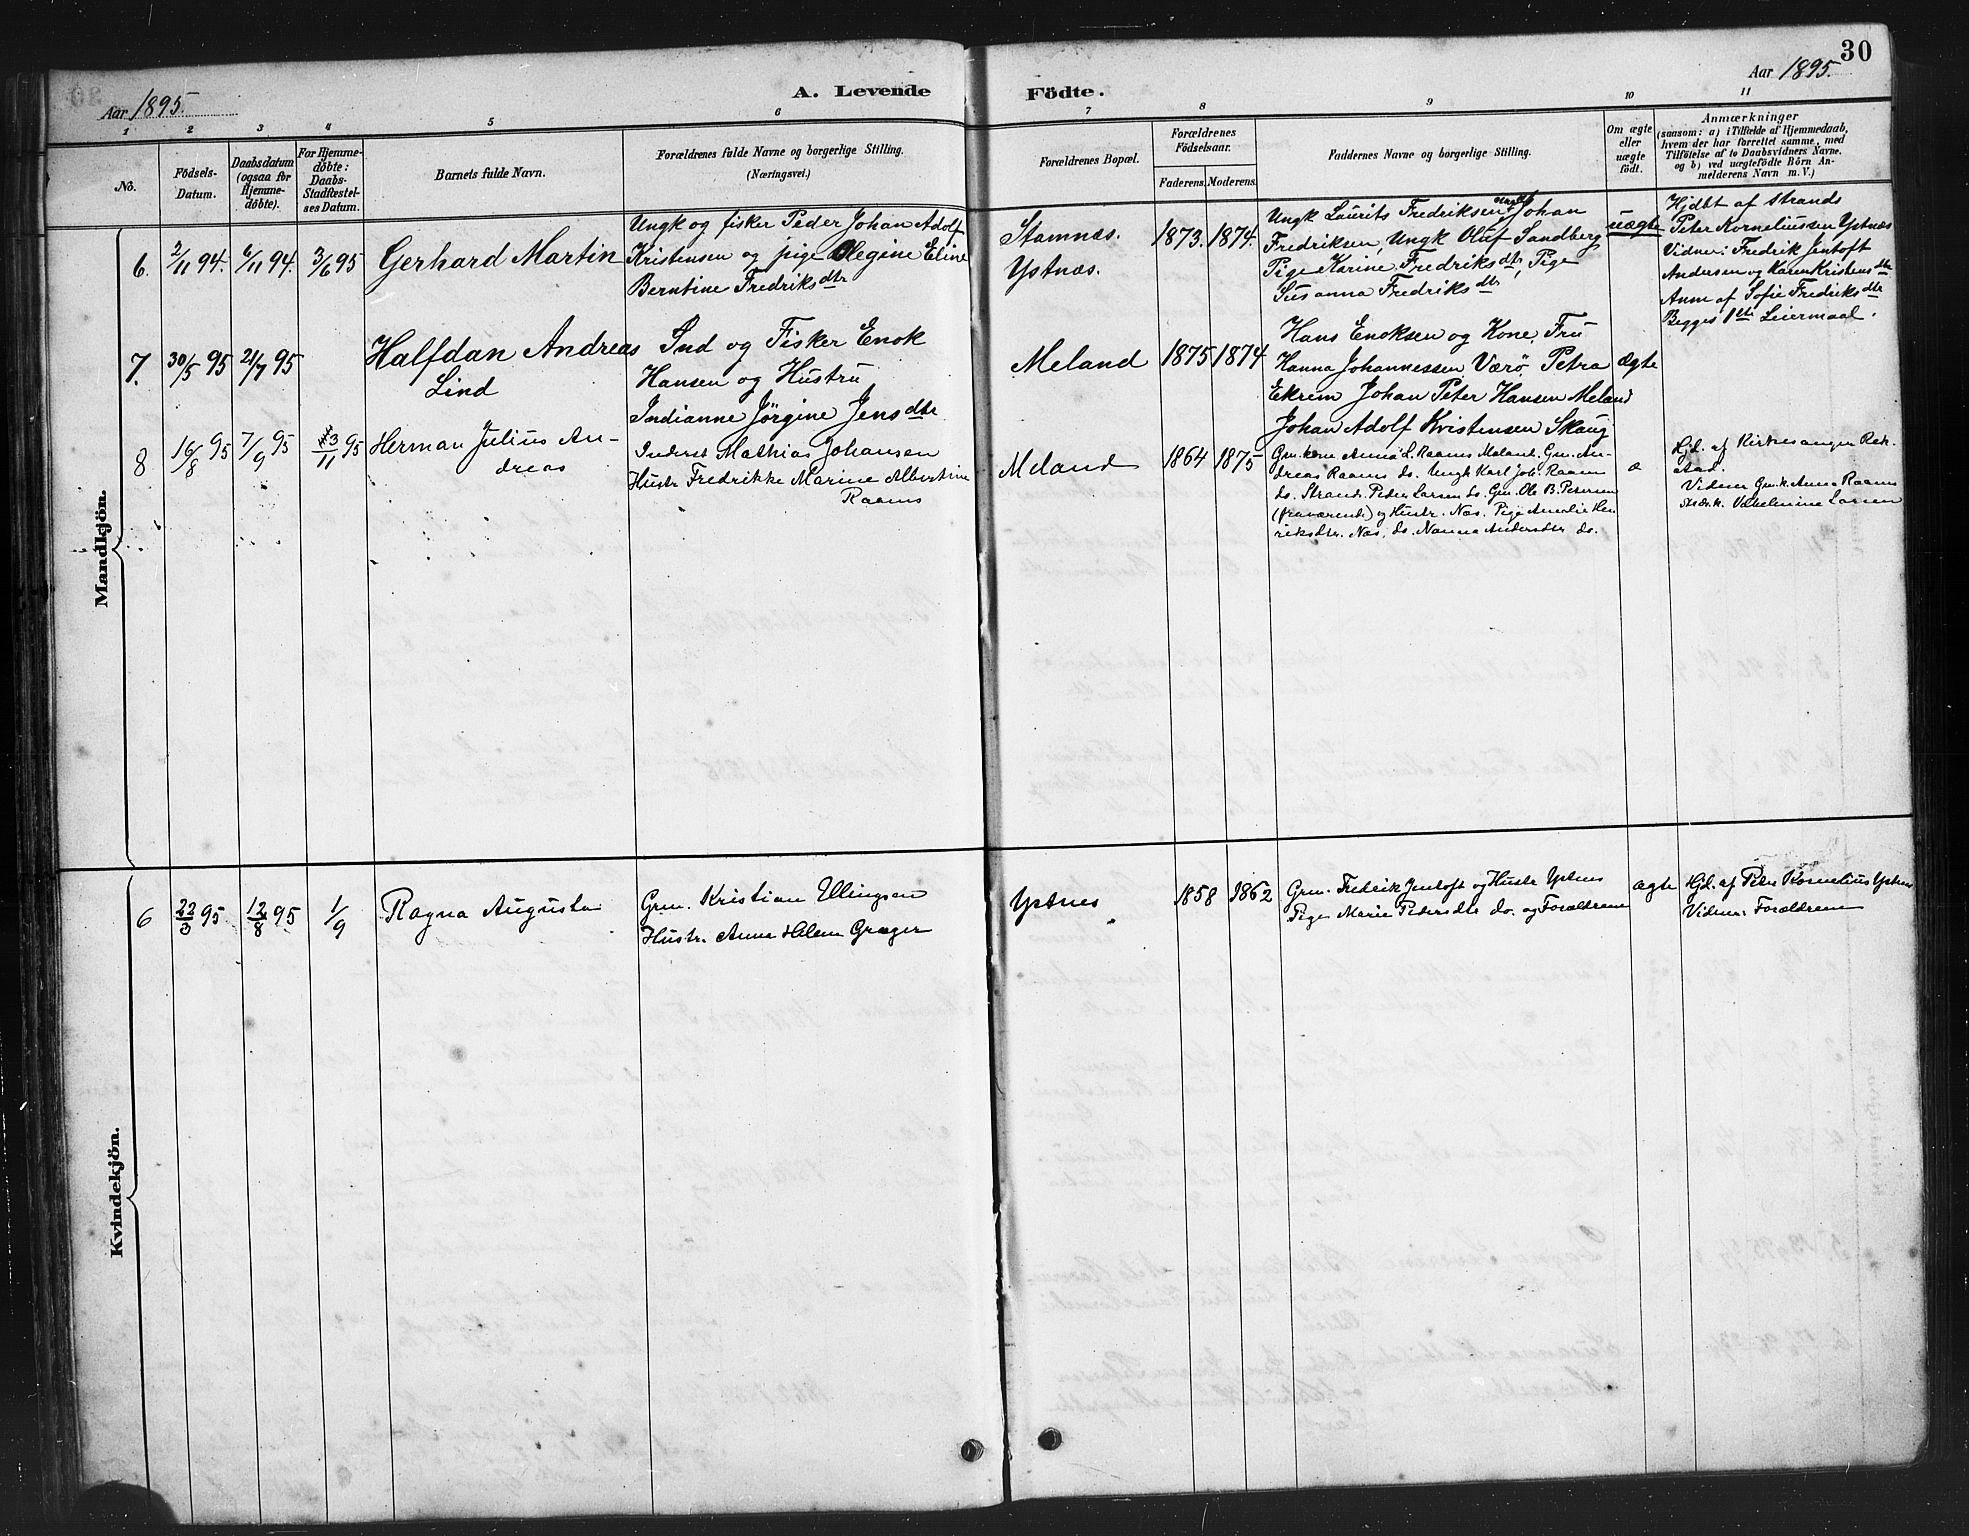 30
Aar 1895.
A. Levende Födte.
Aar 1895.
1 2 3 4 5 6 7 8 9 10 11
No.
Födsels-
Datum.
Daabsdatum
(ogsaa for
Hjemme-
döbte).
For Hjemme-
döbte:
Daabs-
Stadfæstel-
ses Datum.
Barnets fulde Navn.
Forældrenes fulde Navne og borgerlige Stilling.
(Næringsvei.)
Forældrenes Bopæl.
Forældrenes
Födselsaar.
Faderens. Moderens.
Faddernes Navne og borgerlige Stilling.
Om ægte
eller
uægte
født.
Anmærkninger
(saasom: a) i Tilfælde af Hjemmedaab,
hvem der har forrettet samme, med
Tilföielse af to Daabsvidners Navne.
og b) ved uægtefödte Börn An-
melderens Navn m. V.)
Mandkjön.
6. 2/11 94. 6/11 94. 3/6 95
Gerhard Martin
Ungk og fisker Peder Johan Adolf
Kristensen og pige Olegine Eline
Berntine Fredriksdtr
Stamnæs.
Ystnæs.
1873. 1874.
Ungk Laurits Fredriksen, Ungk Johan
Fredriksen, Ungk Oluf Sandberg
Pige Karine Fredriksdtr, Pige
Susanna Fredriksdtr
uægte
Hjdbt af Strands
Peter Korneliussen Ystnæs
Vidner: Fredrik Jentoft
Andersen og Karen Kristensdtr
Anm af Sofie Fredriksdtr
Begges 1ste Leiermaal.
7. 30/5 95 21/7 95
Halfdan Andreas
Lind
Ind og Fisker Enok
Hansen og Hustru
Indianne Jörgine Jensdtr
Meland
1875 1874
Hans Enoksen og Kone, Fru
Hanna Johannessen Værö, Petra
Ekrem Johan Peter Hansen Meland
Johan Adolf Kristensen Skaug
ægte
8 16/8 95 7/9 95 3/11 95
Herman Julius An-
dreas
Inderst Mathias Johansen
Hustr Fredrikke Marine Albertine
Raams
Meland
1864 1875
Gm. kone Anna L. Raams Meland. Gm. An-
dreas Raams do. Ungk Karl Joh. Raam
do. Strand. Peder Larsen do. Gm. Ole B. Petersen
(fraværende) og Hustr. Næs. Pige Amalie Hen
riksdtr. Næs, do. Nanna Andersdtr do.
æ
Hjd. af Kirkesanger Rek-
stad.
Vidner Gm. k. Anna Raams
Vilhelmine Larsen
Kvindekjön.
6 22/3 95 12/8 95 1/9
Ragna Augusta
Grm. Kristian Ellingsen
Hustr. Anna Helene Græger
Ystnes
1858 1862
Grm. Fredrik Jentoft og Hustr Ystnes
Pige Marie Pedersdtr do. og Forældrene
ægte
Hjd. af Peter Kornelius Ystnes
Vidner: Forældrene